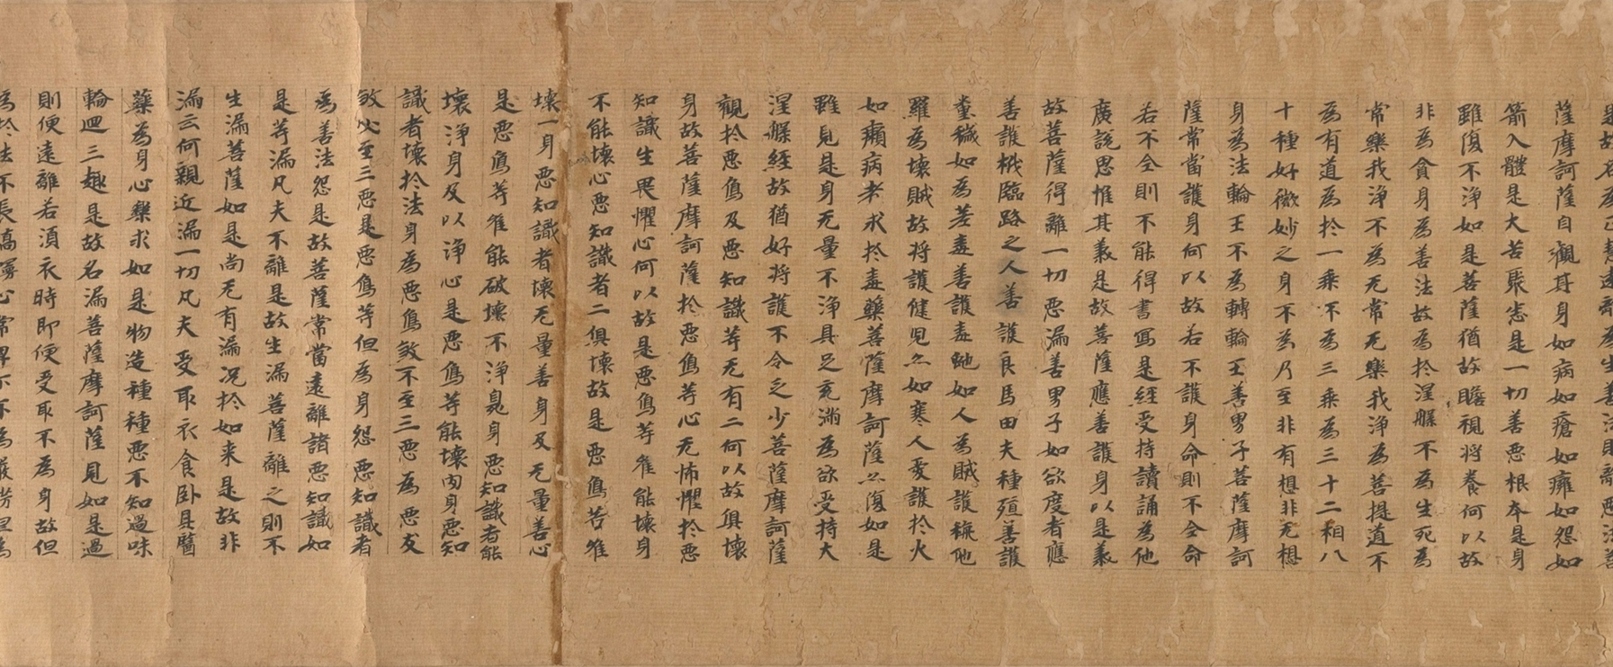 是故名為正慧遠離為生善法則離惡法菩
薩摩訶薩自觀其身如病如瘡如癰如怨如
箭入體是大苦聚悉是一切善惡根本是身
雖復不淨如是菩薩猶故瞻視將養何以故
非為貪身為善法故為於涅槃不為生死為
常樂我淨不為无常无樂我淨為菩提道不
為有道為於一乘不為三乘為三十二相八
十種好微妙之身不為乃至非有想非无想
身為法輪王不為轉輪王善男子菩薩摩訶
薩常當護身何以故若不護身命則不全命
若不全則不能得書寫是經受持讀誦為他
廣說思惟其義是故菩薩應善護身以是義
故菩薩得離一切惡漏善男子如欲度者應
善護栰臨路之人善護良馬田夫種殖善護
糞穢如為差毒善護毒虵如人為賊護旃他
羅為壞賊故將護健兒亦如寒人愛護於火
如癩病者求於毒藥菩薩摩訶薩亦復如是
雖見是身无量不淨具足充滿為欲受持大
涅槃經故猶好將護不令乏少菩薩摩訶薩
觀於惡象及惡知識等无有二何以故俱壞
身故菩薩摩訶薩於惡象等心无怖懼於惡
知識生畏懼心何以故是惡象等唯能壞身
不能壞心惡知識者二俱壞故是惡象等唯
壞一身惡知識者壞无量善身及无量善心
是惡象等唯能破壞不淨臭身惡知識者能
壞淨身及以淨心是惡象等能壞肉身惡知
識者壞於法身為惡象煞不至三惡為惡友
煞必至三惡是惡象等但為身怨惡知識者
為善法怨是故菩薩常當遠離諸惡知識如
是等漏凡夫不離是故生漏菩薩離之則不
生漏菩薩如是尚无有漏況於如來是故非
漏云何親近漏一切凡夫受取衣食臥具醫
藥為身心樂求如是物造種種惡不知過味
輪迴三趣是故名漏菩薩摩訶薩見如是過
則便遠離若須衣時即便受取不為身故但
為於法不長憍慢心常卑下不為嚴